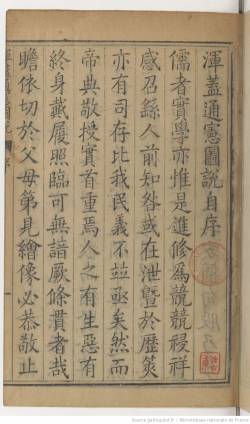 渾蓋通憲圖說自序
儒者實學亦惟是進修爲兢兢祲祥
感召繇人前知咎或在泄暨於歷筴
亦有司存比我民義不竝亟矣然而
帝典敬授實首重焉人之有生惡有
終身戴履照臨可無諳厥條貫者哉
瞻依切於父母第見繪像必恭敬止
Source gallica.bnf.fr / Bibliothèque nationale de France